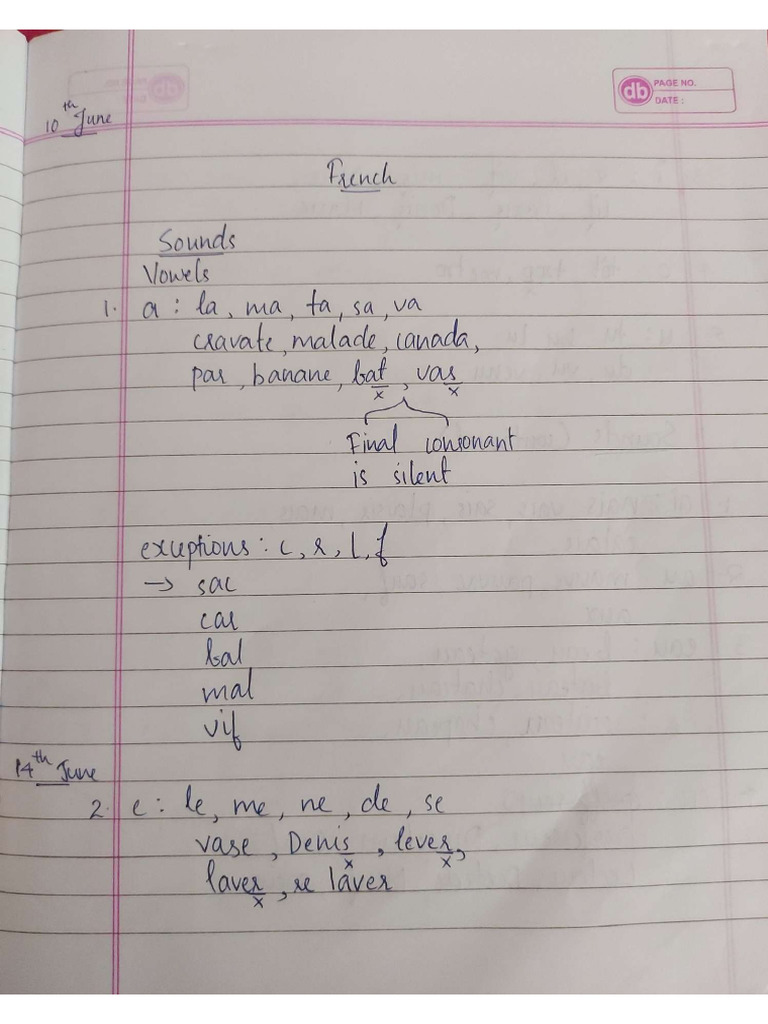 db PAGE NO.
DATE :
10th June
French
Sounds
Vowels
1. a : la, ma, ta, sa, va
cravate, malade, canada,
par, banane, bat, vas
x x
Final consonant
is silent
exceptions : c, r, l, f
→ sac
car
bal
mal
vif
14th June
2. e : le, me, ne, de, se
vase, Denis, lever,
x x
laver, se laver
x